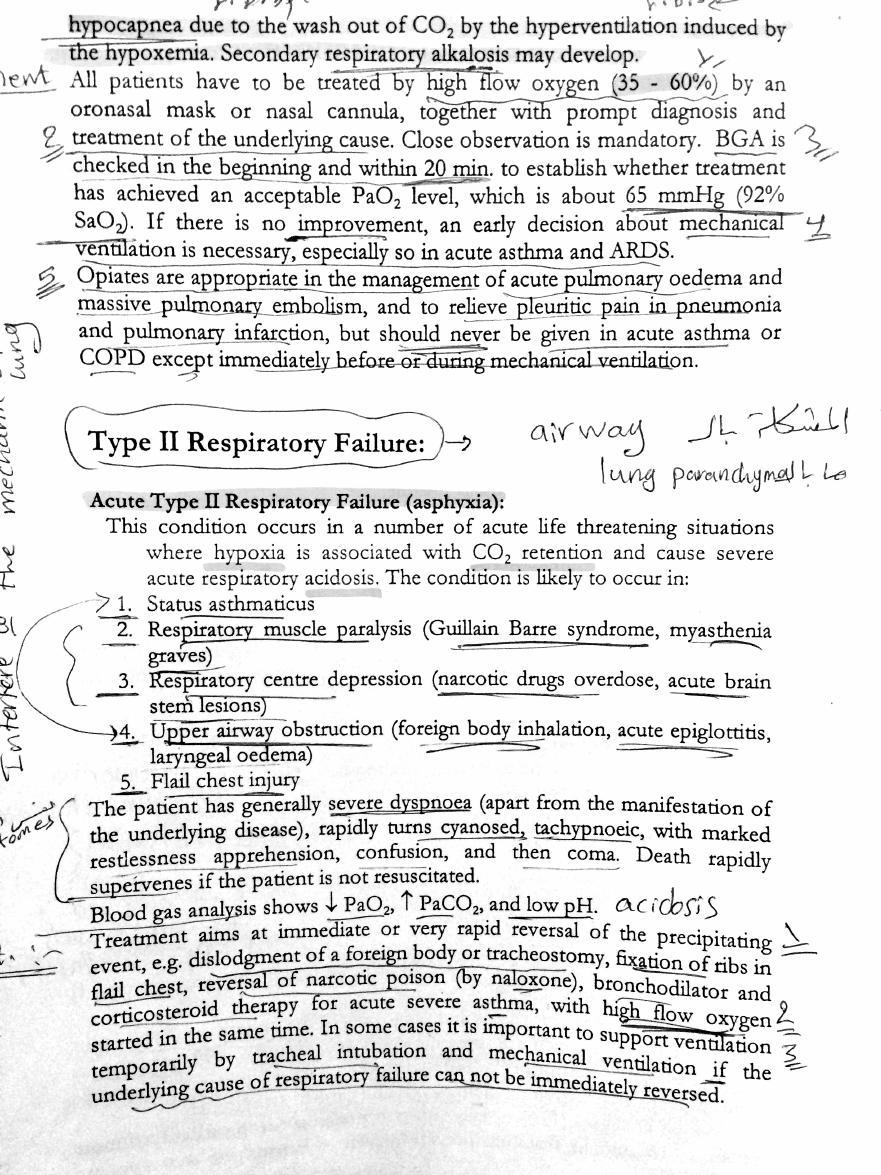 hypocapnea due to the wash out of CO₂ by the hyperventilation induced by
the hypoxemia. Secondary respiratory alkalosis may develop.
All patients have to be treated by high flow oxygen (35 - 60%) by an
oronasal mask or nasal cannula, together with prompt diagnosis and
2 treatment of the underlying cause. Close observation is mandatory. BGA is 3
checked in the beginning and within 20 min. to establish whether treatment
has achieved an acceptable PaO₂ level, which is about 65 mmHg (92%
SaO₂). If there is no improvement, an early decision about mechanical 4
ventilation is necessary, especially so in acute asthma and ARDS.
5 Opiates are appropriate in the management of acute pulmonary oedema and
massive pulmonary embolism, and to relieve pleuritic pain in pneumonia
and pulmonary infarction, but should never be given in acute asthma or
COPD except immediately before or during mechanical ventilation.
lung
Interfere the
Type II Respiratory Failure: → airway
lung paranchymal
Acute Type II Respiratory Failure (asphyxia):
This condition occurs in a number of acute life threatening situations
where hypoxia is associated with CO₂ retention and cause severe
acute respiratory acidosis. The condition is likely to occur in:
1. Status asthmaticus
2. Respiratory muscle paralysis (Guillain Barre syndrome, myasthenia
graves)
3. Respiratory centre depression (narcotic drugs overdose, acute brain
stem lesions)
4. Upper airway obstruction (foreign body inhalation, acute epiglottitis,
laryngeal oedema)
5. Flail chest injury
The patient has generally severe dyspnoea (apart from the manifestation of
the underlying disease), rapidly turns cyanosed, tachypnoeic, with marked
restlessness apprehension, confusion, and then coma. Death rapidly
supervenes if the patient is not resuscitated.
Blood gas analysis shows ↓ PaO₂, ↑ PaCO₂, and low pH. acidosis
Treatment aims at immediate or very rapid reversal of the precipitating 1
event, e.g. dislodgment of a foreign body or tracheostomy, fixation of ribs in
flail chest, reversal of narcotic poison (by naloxone), bronchodilator and
corticosteroid therapy for acute severe asthma, with high flow oxygen 2
started in the same time. In some cases it is important to support ventilation 3
temporarily by tracheal intubation and mechanical ventilation if the
underlying cause of respiratory failure can not be immediately reversed.